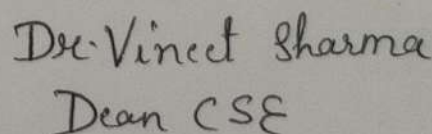 Dr. Vineet Sharma
Dean CSE